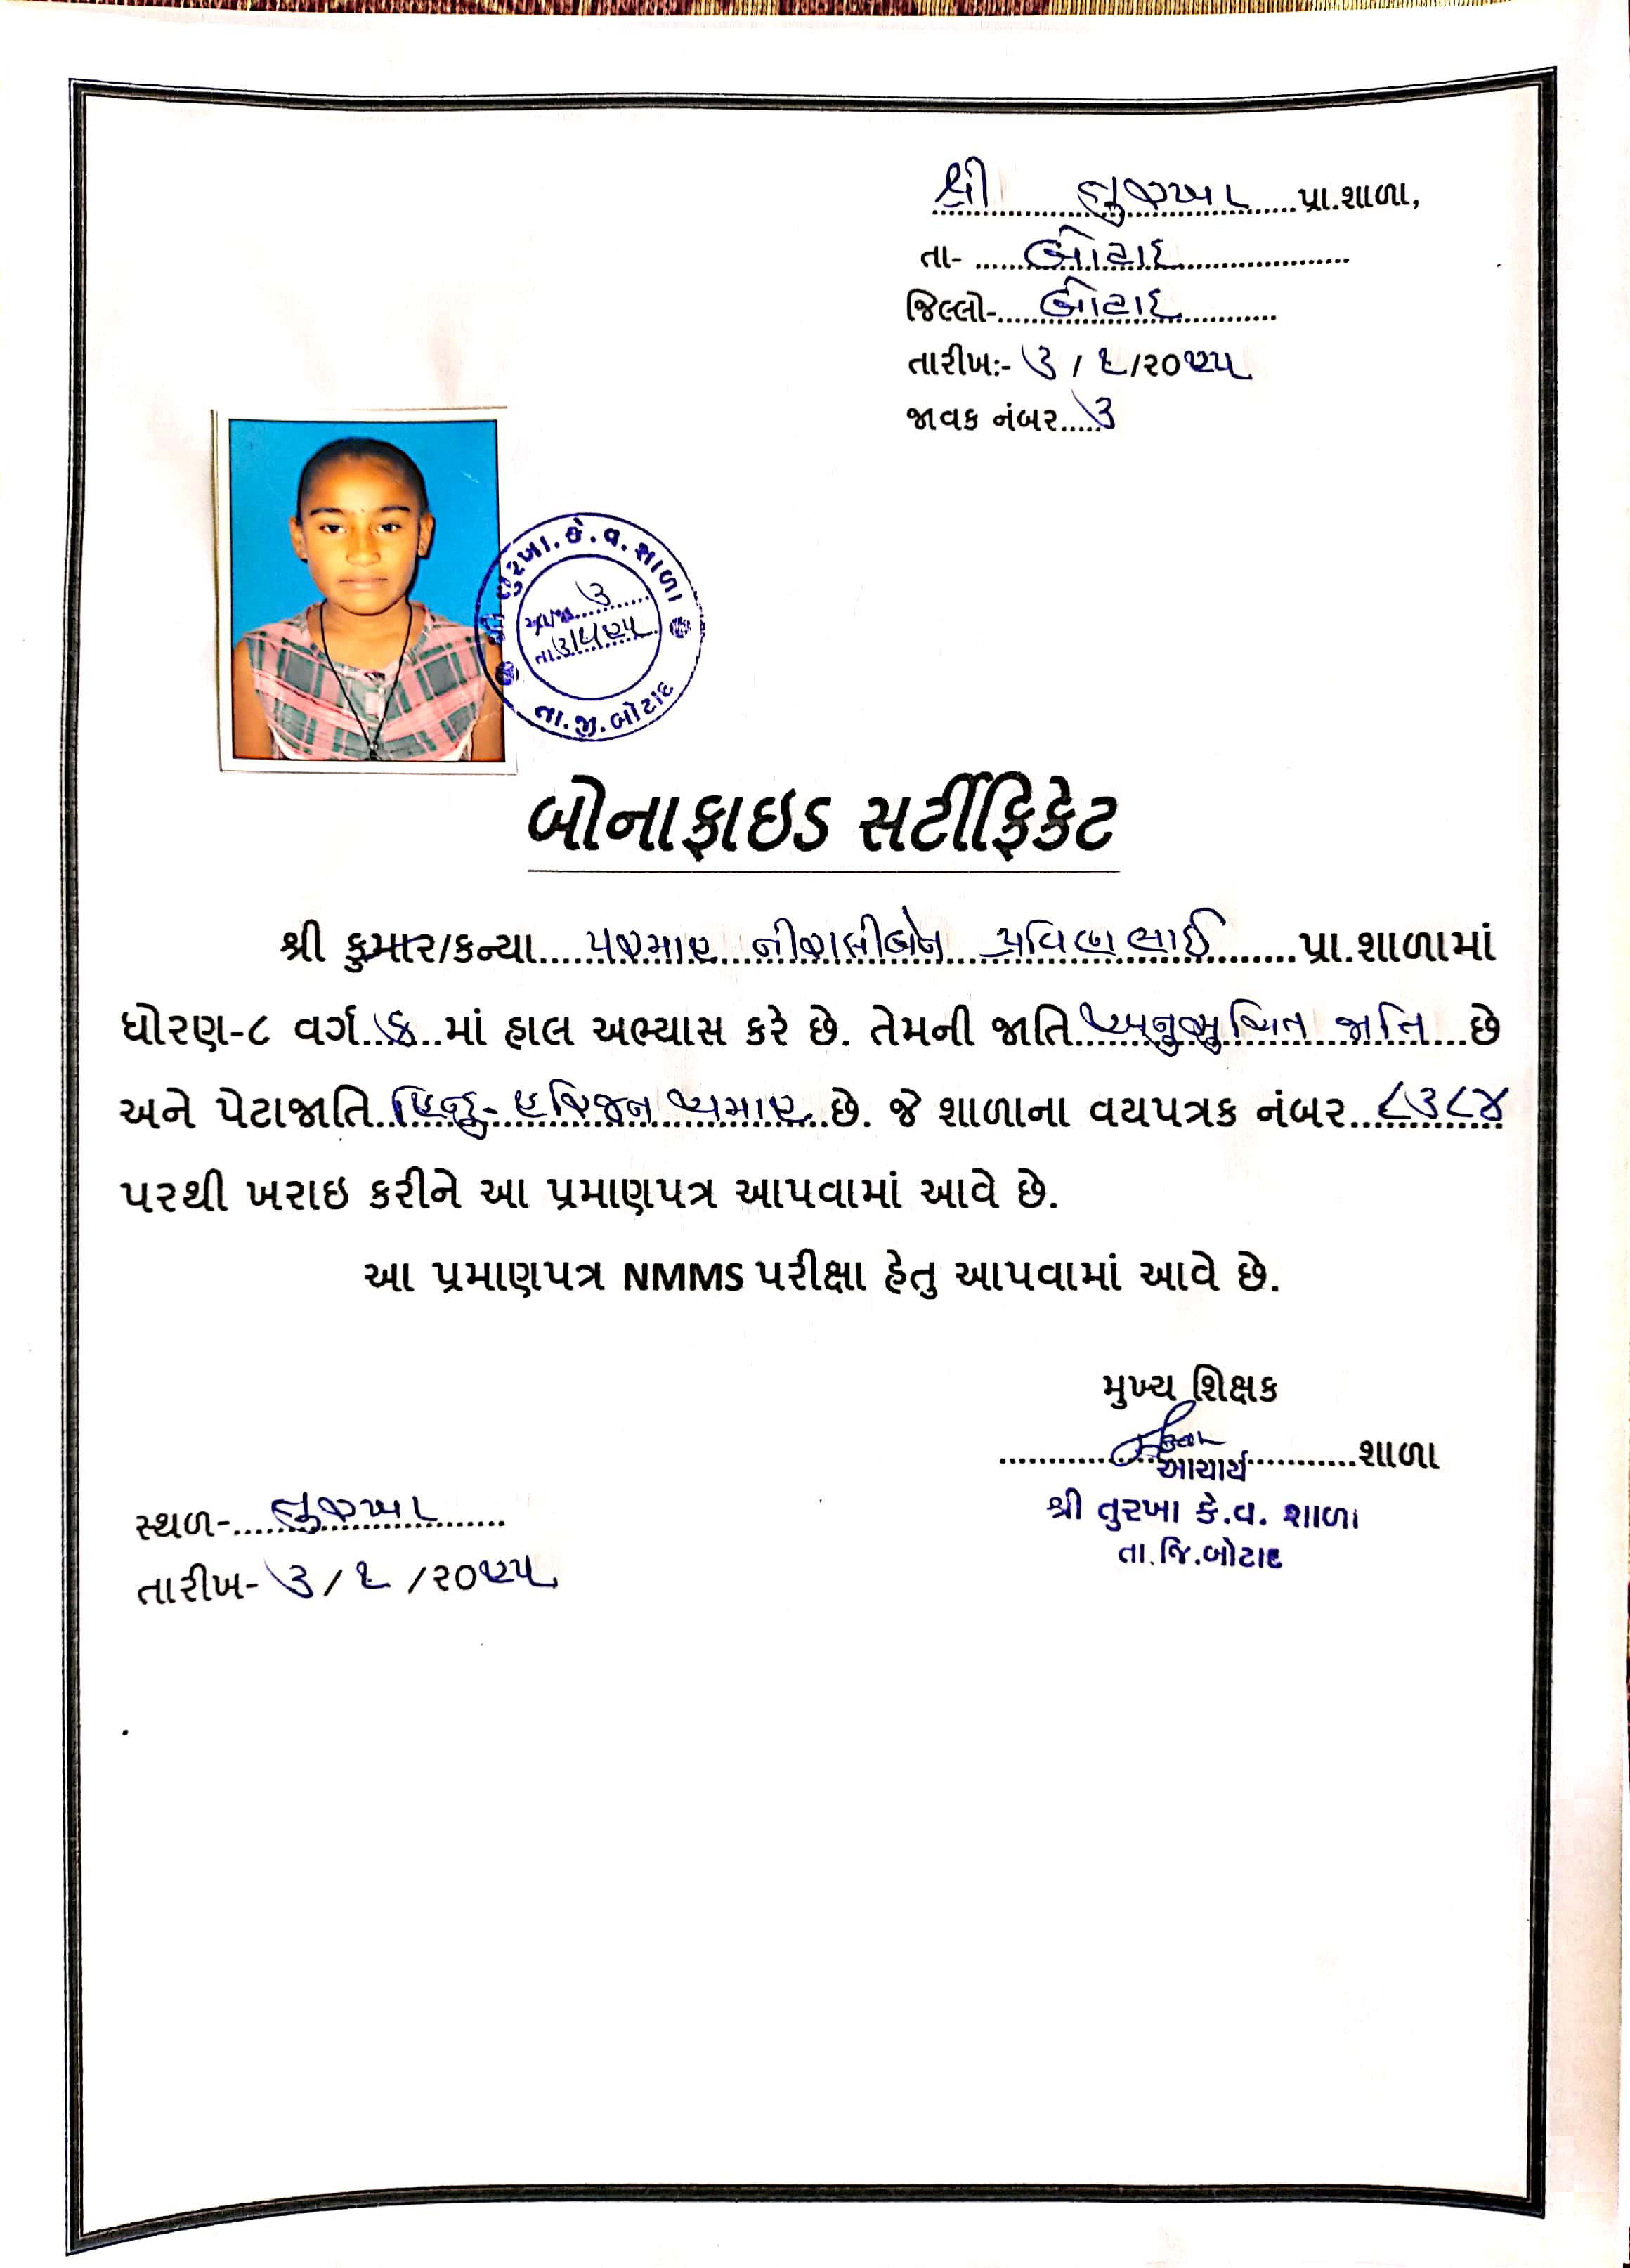 શ્રી તુરખા પ્રા.શાળા,
તા- બોટાદ
જિલ્લો- બોટાદ
તારીખ:- ૩ / ૧ /૨૦૨૫
જાવક નંબર.....૩
શ્રી તુરખા. કે. વ. શાળા
૩
તા. ૩/૧/૨૫
તા.જી.બોટાદ
બોનાફાઇડ સર્ટીફિકેટ
શ્રી કુમાર/કન્યા.....પરમાર નીરાલીબેન પ્રવિણભાઈ.....પ્રા.શાળામાં
ધોરણ-૮ વર્ગ..ક..માં હાલ અભ્યાસ કરે છે. તેમની જાતિ..અનુસુચિત જાતિ...છે
અને પેટાજાતિ..હિન્દુ- હરિજન ચમાર..છે. જે શાળાના વયપત્રક નંબર..૮૩૮૪
પરથી ખરાઇ કરીને આ પ્રમાણપત્ર આપવામાં આવે છે.
આ પ્રમાણપત્ર NMMS પરીક્ષા હેતુ આપવામાં આવે છે.
મુખ્ય શિક્ષક
....................શાળા
આચાર્ય
શ્રી તુરખા કે.વ. શાળા
તા.જિ.બોટાદ
સ્થળ-....તુરખા....
તારીખ- ૩ / ૧ /૨૦૨૫